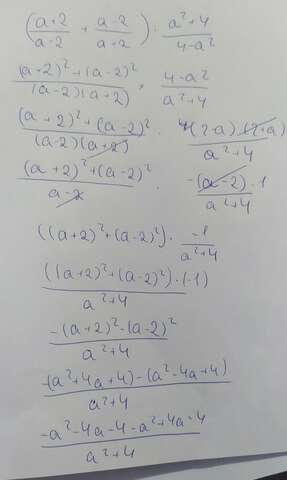 (a+2/a-2 + a-2/a+2) : a²+4/4-a²
(a+2)²+(a-2)²/(a-2)(a+2) · 4-a²/a²+4
(a+2)²+(a-2)²/(a-2)(a+2) · (2-a)(2+a)/a²+4
(a+2)²+(a-2)²/a-2 · -(a-2)·1/a²+4
((a+2)²+(a-2)²) · -1/a²+4
((a+2)²+(a-2)²)·(-1)/a²+4
-(a+2)²-(a-2)²/a²+4
-(a²+4a+4)-(a²-4a+4)/a²+4
-a²-4a-4-a²+4a-4/a²+4